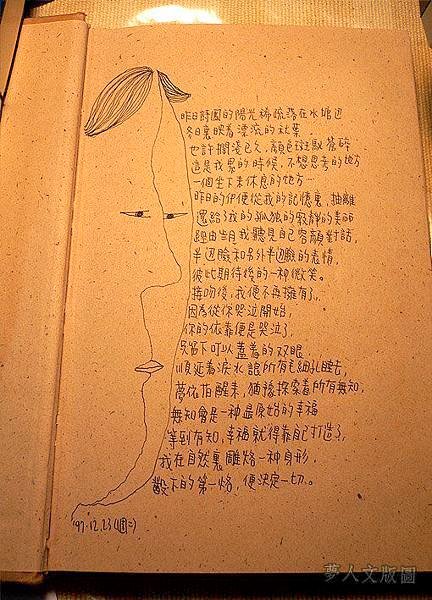 昨日時圍的陽光稀疏落在水塘边
冬日裏映着漂流的秋葉，
也許擱淺已久，顏色斑駁蒼碎
這是我累的時候，不想思考的地方
一個坐下來休息的地方…
昨日的你便從我的記憶裏，抽離
還給了我的孤独的寂靜的美丽
經由岁月我聽見自己容顏對話，
半边臉和另外半边臉的表情，
彼此期待後的一种微笑。
接吻後，我便不再擁有了，
因為從你哭泣開始，
你的依靠便是哭泣了，
只留下可以蓋着的双眼
順延着淚水跟所有毛細孔睡去，
夢依指醒来，猶豫探索着所有無知，
無知會是一种最原始的幸福
等到有知，幸福就得靠自己打造了，
我在自然裏雕烙一种身形，
毀下的第一烙，便決定一切。
'97.12.23(週二)
夢人文版圖